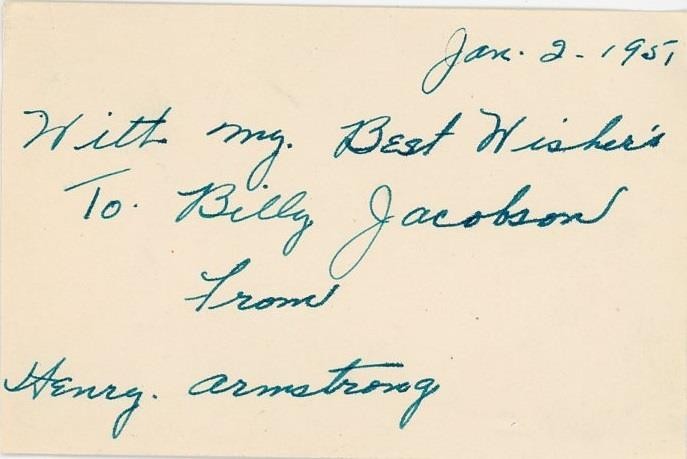 Jan. 2 - 1951
With my. Best Wisher's
To. Billy Jacobson
From
Henry. Armstrong